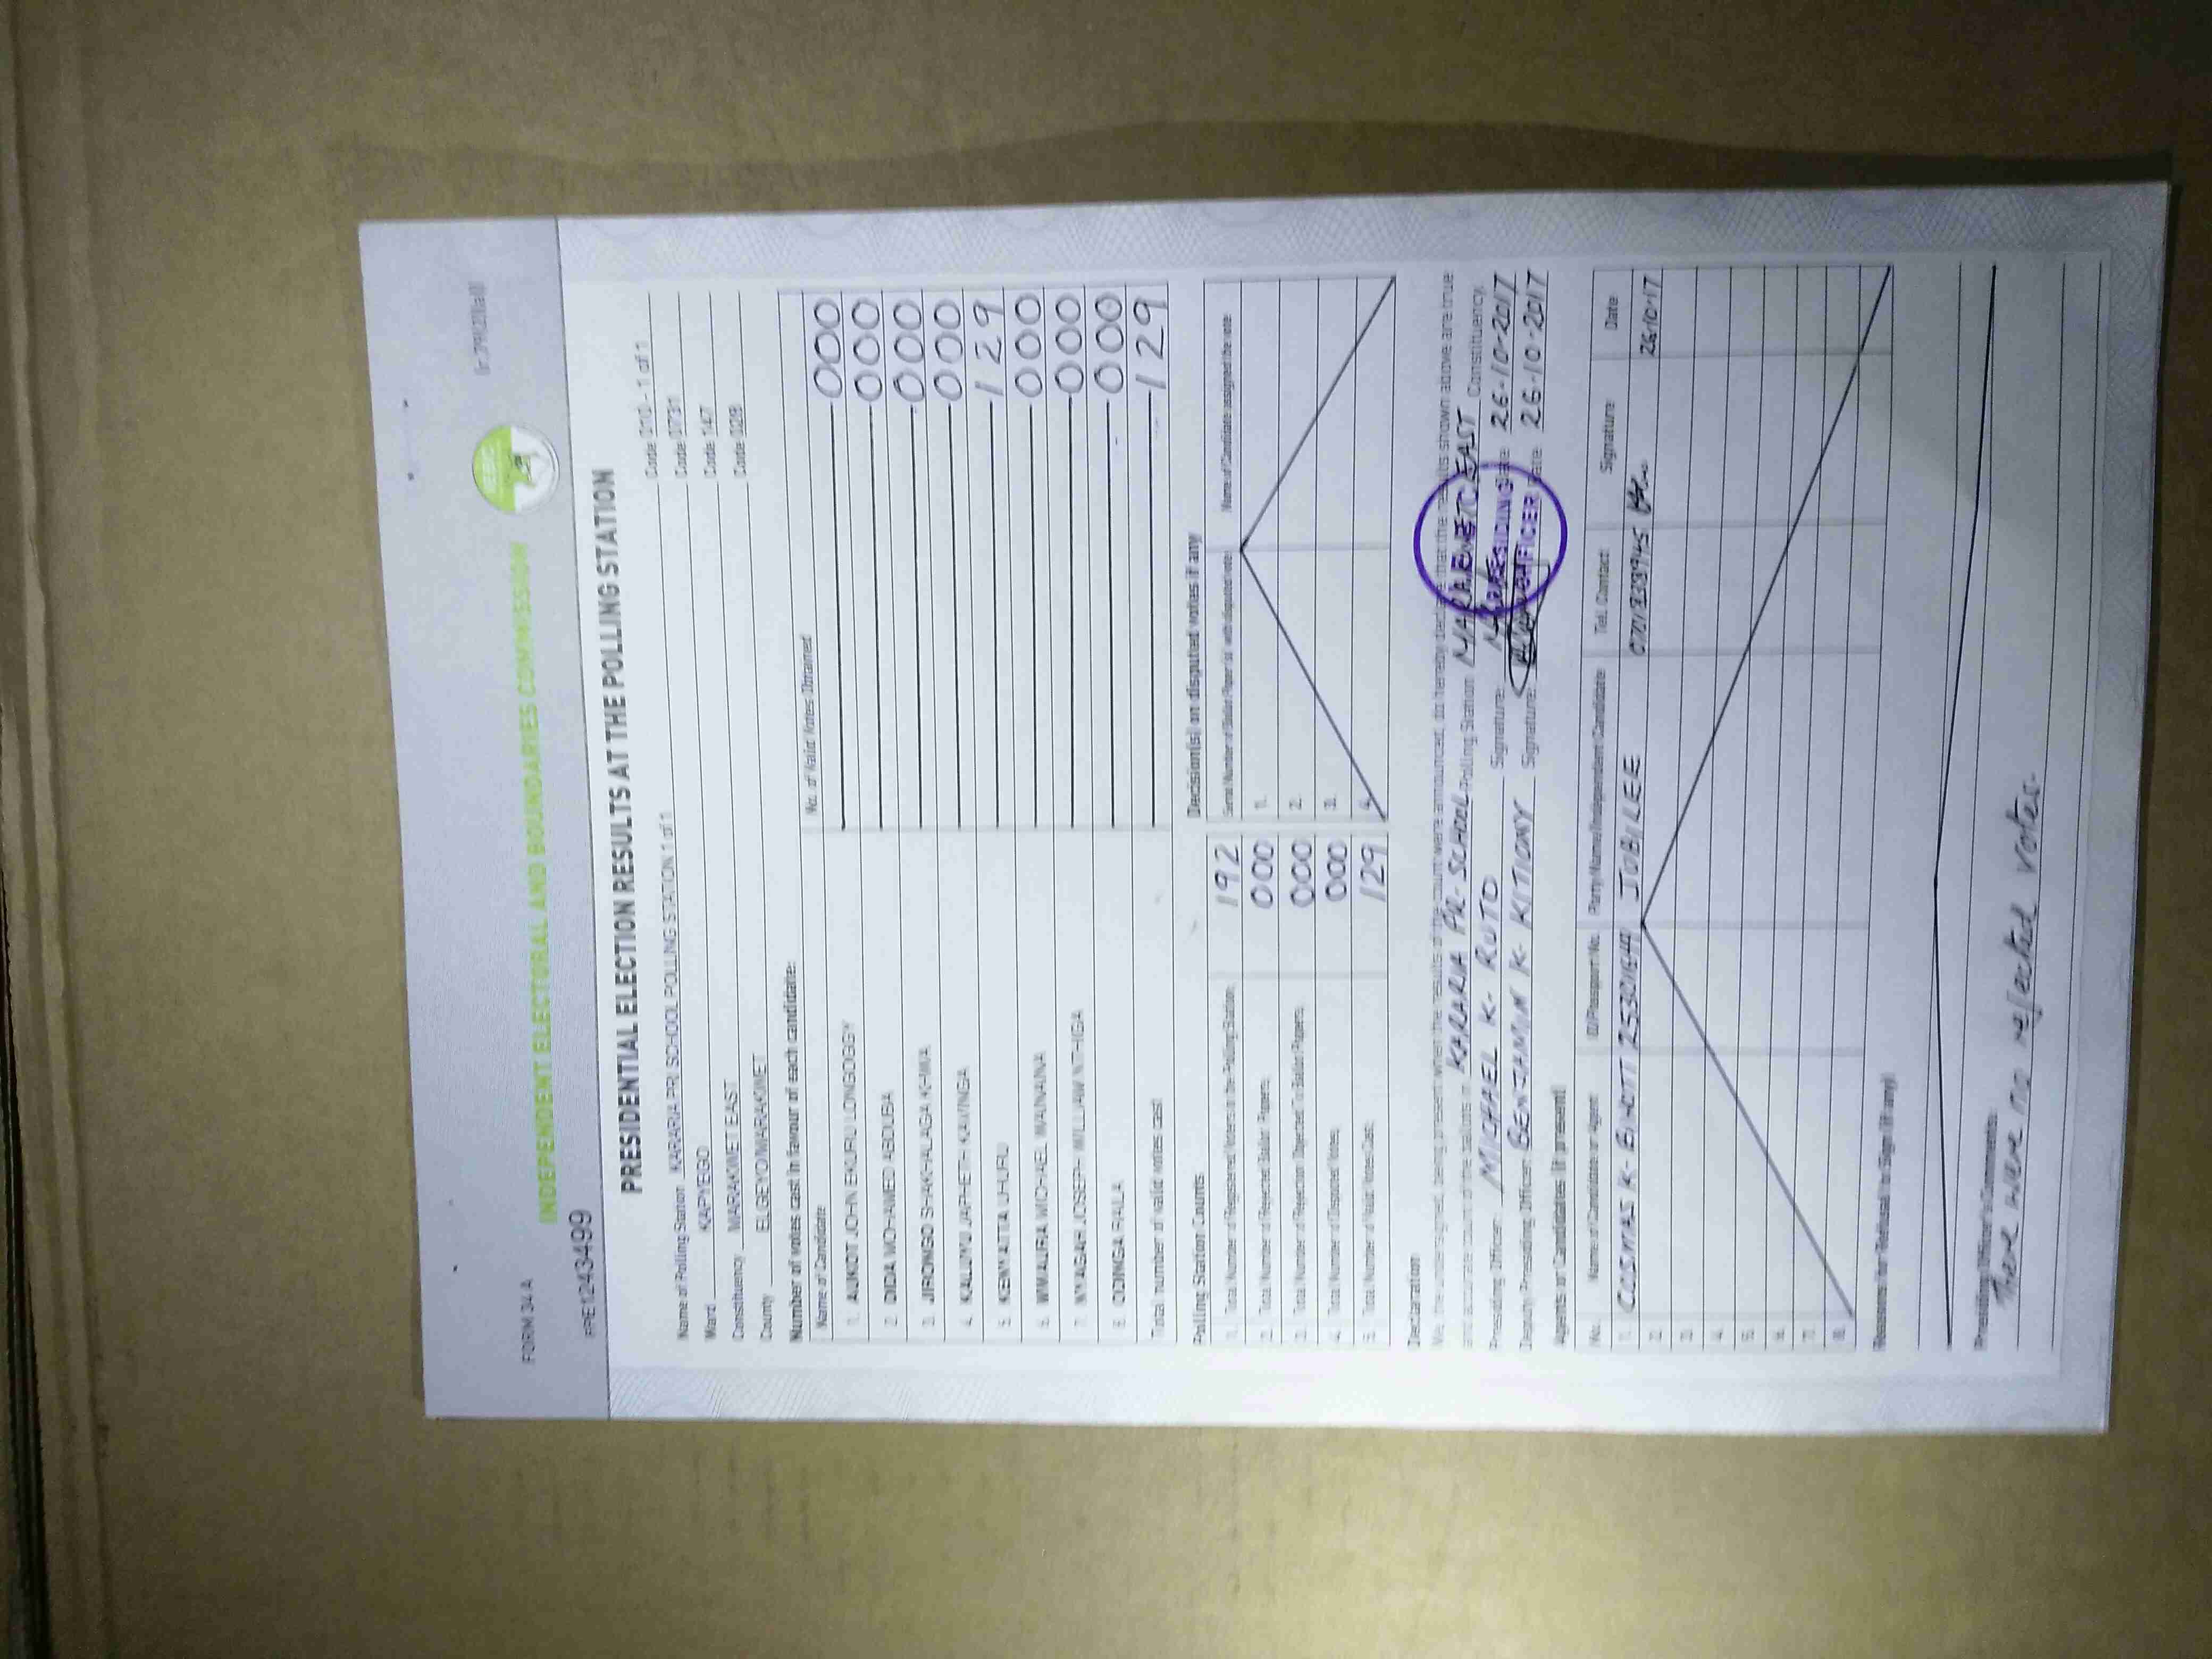 FORM 34 A
INDEPENDENT ELECTORAL AND BOUNDARIES COMMISSION
PRE1243499
PRESIDENTIAL ELECTION RESULTS AT THE POLLING STATION
Name of Polling Station KARARIA PRI SCHOOL POLLING STATION 1 of 1 Code 010 - 1 of 1
Ward KAPYEGO Code 0731
Constituency MARAKWET EAST Code 147
County ELGEYO/MARAKWET Code 028
Number of votes cast in favour of each candidate:
Name of Candidate No. of Valid Votes Obtained
1. AUKOT JOHN EKURU LONGOGGY 000
2. DIDA MOHAMED ABDUBA 000
3. JIRONGO SHAKHALAGA KHWA 000
4. KALUYU JAPHETH KAVINGA 000
5. KENYATTA UHURU 129
6. MWAURA MICHAEL WAINAINA 000
7. NYAGAH JOSEPH WILLIAM NTHIGA 000
8. ODINGA RAILA 000
Total number of valid votes cast 129
Polling Station Counts Decision(s) on disputed votes if any
Serial Number of Ballot Paper(s) with disputed vote Name of Candidate assigned the vote
1. Total Number of Registered Voters in the Polling Station 192 1.
2. Total Number of Rejected Ballot Papers 000 2.
3. Total Number of Rejection Objected To Ballot Papers 000 3.
4. Total Number of Disputed Votes 000 4.
5. Total Number of Valid Votes Cast 129
Declaration
We, the undersigned, being present when the results of the count were announced, do hereby declare that the results shown above are true
and accurate count of the ballots in KARARIA PR. SCHOOL Polling Station MARAKWET EAST Constituency.
Presiding Officer: MICHAEL K. RUTO Signature: Date: 26-10-2017
Deputy Presiding Officer: BENJAMIN K. KITIONY Signature: Date: 26-10-2017
PRESIDING OFFICER
Agents or Candidates (if present)
No. Name of Candidate or Agent ID/Passport No. Party Name/Independent Candidate Tel. Contact Signature Date
1. COSMAS K. 25301644 JUBILEE 26.10.17
2.
3.
4.
5.
6.
7.
8.
Reasons for Refusal to Sign (if any)
Presiding Officer's Comments:
There were no rejected votes.